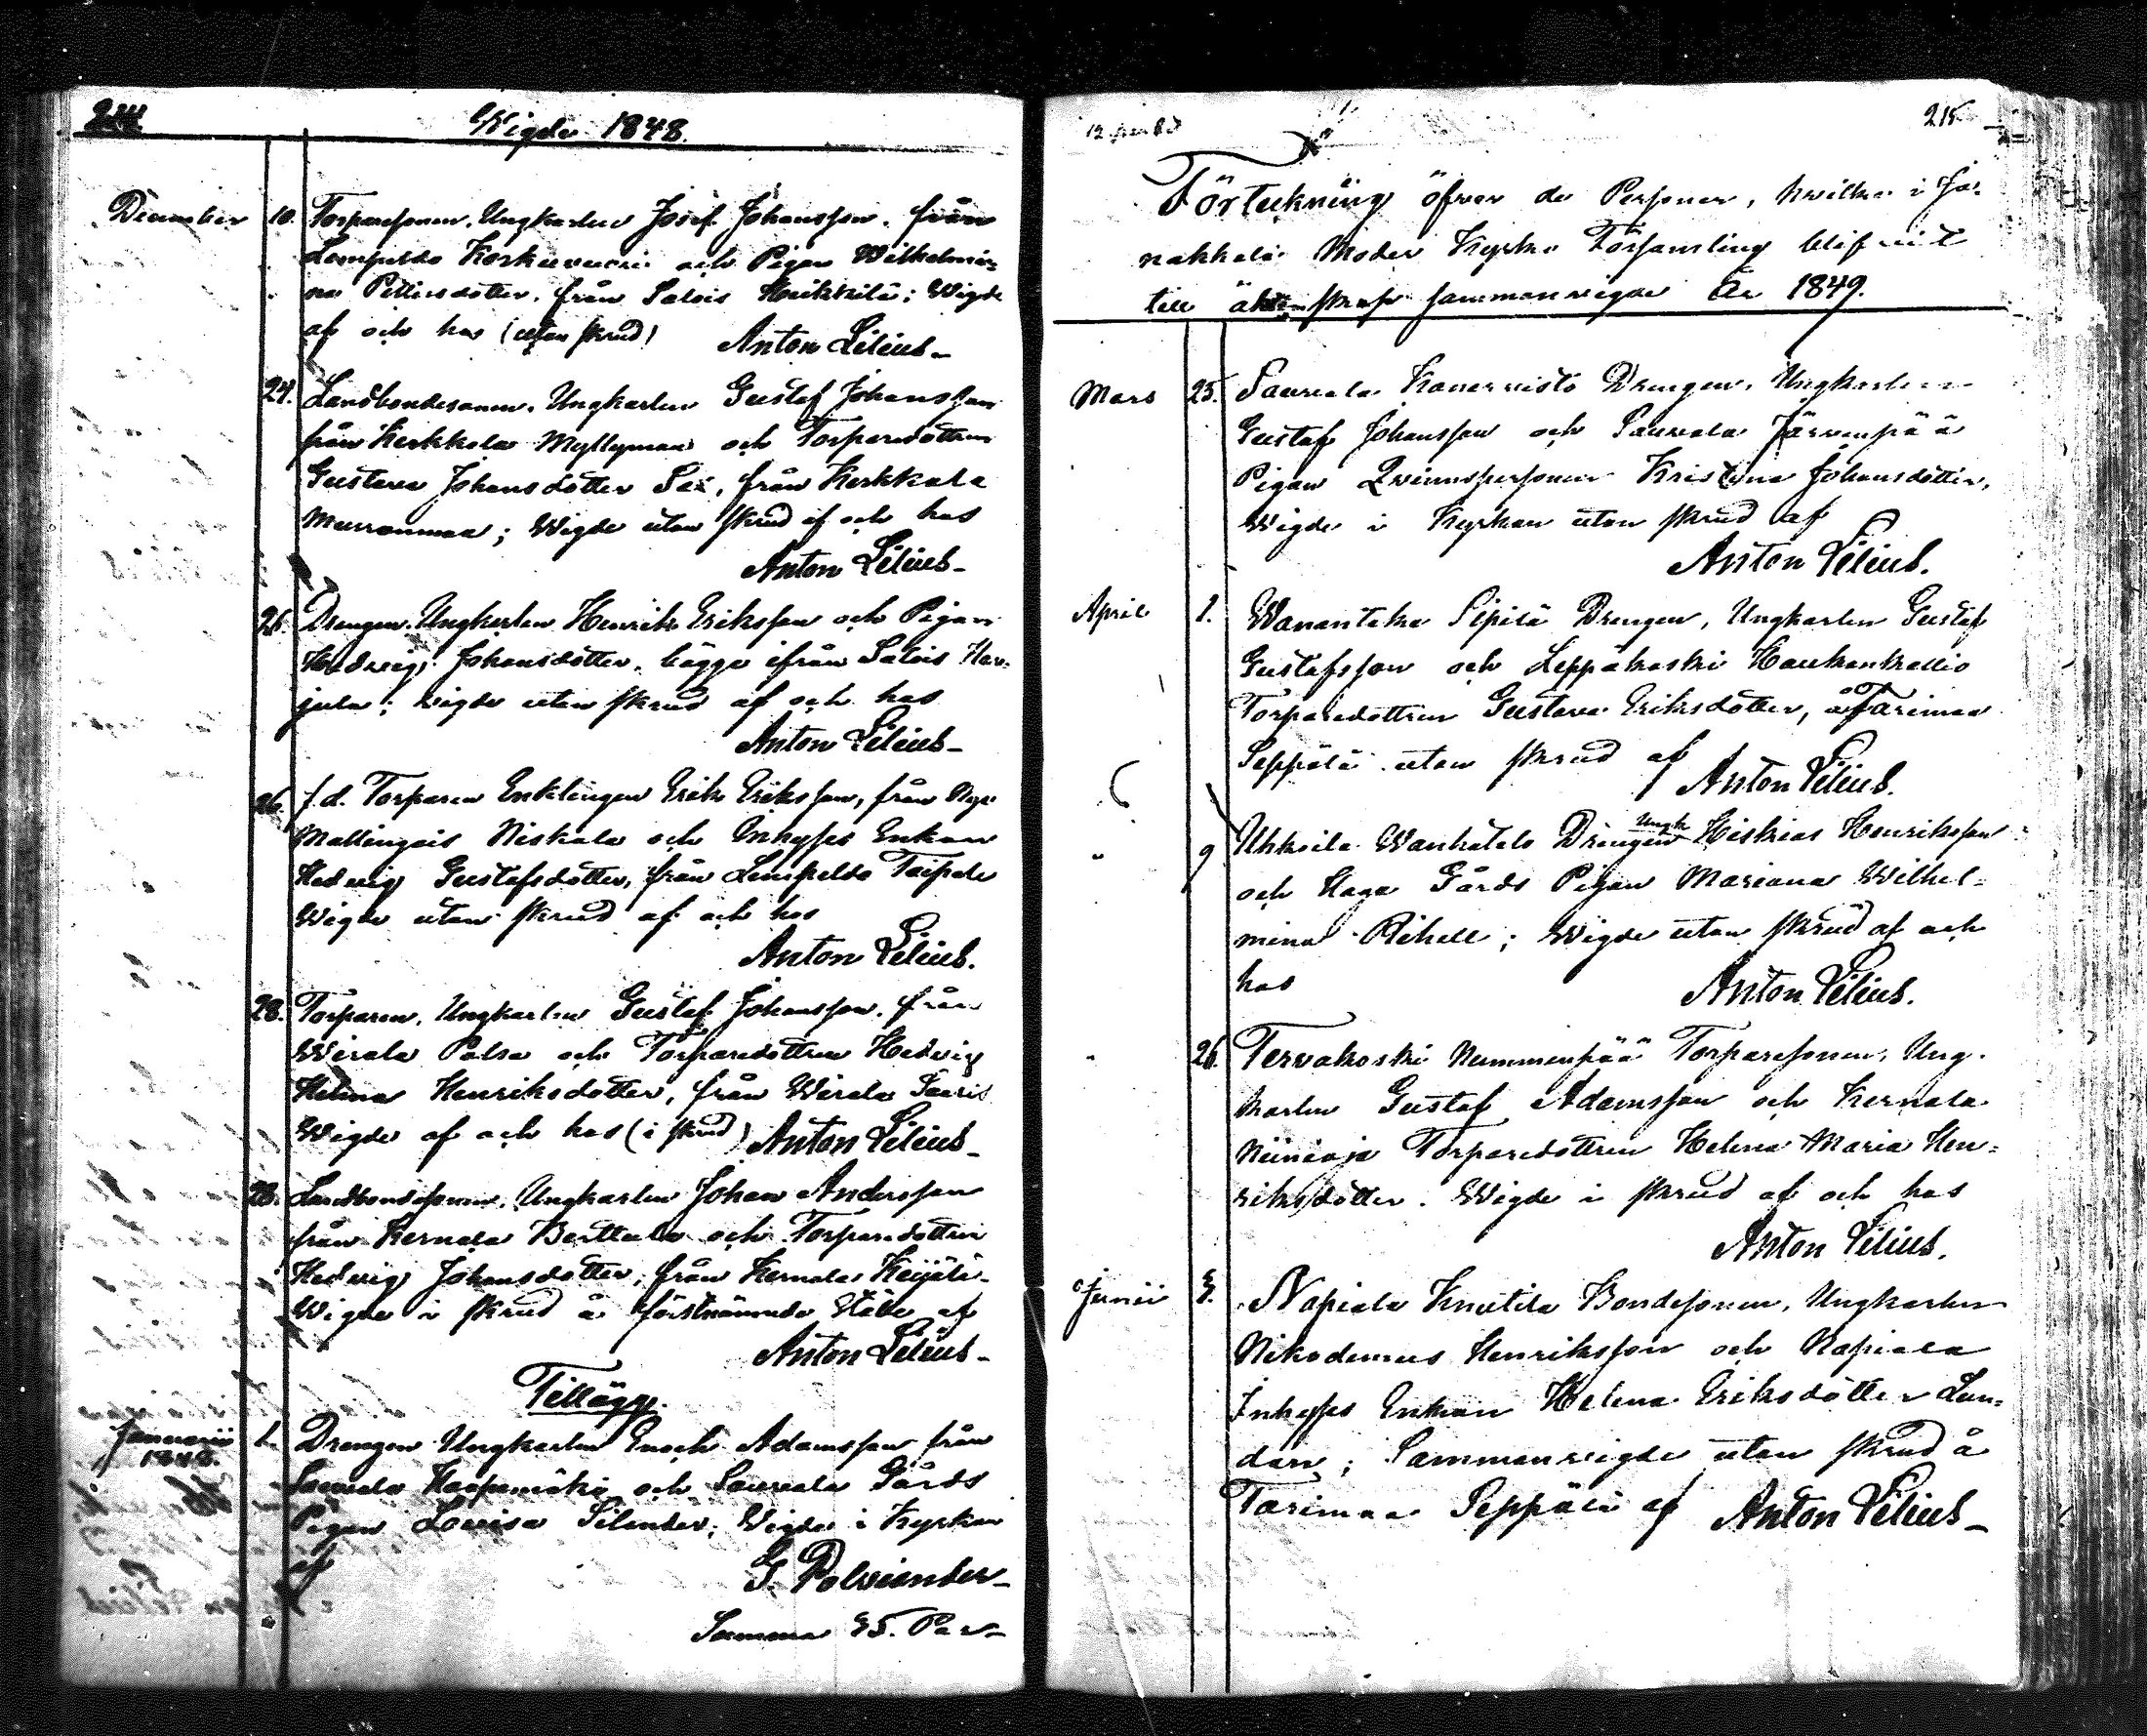 214
Wigde 1848.
December 10. Torparesonen, Ungkarlen Josef Johansson, från
Lempeldo Korkeevuori och Pigan Wilhelmi-
na Pettersdotter, från Salois Heikkilä; Wigde
af och hos (utan skrud) Anton Lilius
24. Landbondesonen, Ungkarlen Gustaf Johansson
från Kerkkola Myllymaa och Torparedottren
Gustava Johansdotter Sax, från Kerkkola
Murronmaa; Wigde utan skrud af och hos
Anton Lilius
26. Drengen, Ungkarlen Henrik Eriksson och Pigan
Hedvig Johansdotter, bägge ifrån Salois Har-
jula; vigde utan skrud af och hos
Anton Lilius
26. f.d. Torparen Enklingen Erik Eriksson, från
Mallingais Niskala och Inhyses Enkan
Hedvig Gustafsdotter, från Lempeldo Taipale
Wigde utan skrud af och hos
Anton Lilius.
28. Torparen, Ungkarlen Gustaf Johansson, från
Wirala Palsa och Torparedottren Hedvig
Helena Henriksdotter, från Wirala
Wigde af och hos (i skrud) Anton Lilius
28. Landbondesonen, Ungkarlen Johan Andersson
från Kernala Berttula och Torparedottren
Hedvig Johansdotter, från Kernala
Wigde i skrud å förstnämnde ställe af
Anton Lilius
Tillägg.
Januarii 1. Drengen Ungkarlen Enoch Adamsson från
1848.
Saurela Haapamäki och Saurela Gårds
Pigan Lovisa Silander; Wigde i Kyrkan
af
G. Polviander
Summa 35. Par
215
Förteckning öfver de Personer, hvilka i Ja-
nakkala Moder Kyrko Församling blifvit
till äktenskap sammanvigde År 1849.
Mars 25. Saurela Kanervisto Drengen, Ungkarlen
Gustaf Johansson och Saurela Järvenpää
Pigan Qvinnspersonen Kristina Johansdotter,
Wigde i Kyrkan utan skrud af
Anton Lilius.
April 1. Wanantaka Sipilä Drengen, Ungkarlen Gustaf
Gustafsson och Leppäkoski Haukankallio
Torparedottren Gustava Eriksdotter, å Tarinmaa
Seppälä utan skrud af
Anton Lilius.
" 9 Uhkoila Wanhatalo Drengen Ungk Hiskias Henriksson
och Haga Gårds Pigan Mariana Wilhel-
mina Rihell; Wigde utan skrud af och
hos
Anton Lilius.
" 26. Tervakoski Nummenpää Torparesonen, Ung-
karlen Gustaf Adamsson och Kernala
Niinioja Torparedottren Helena Maria Hen-
riksdotter. Wigde i skrud af och hos
Anton Lilius.
Junii 3. Napiala Knutila Bondesonen, Ungkarlen
Nikodemus Henriksson och Napiala
Inhyses Enkan Helena Eriksdotter Lun-
den; Sammanvigde utan skrud å
Tarinmaa Seppälä af Anton Lilius